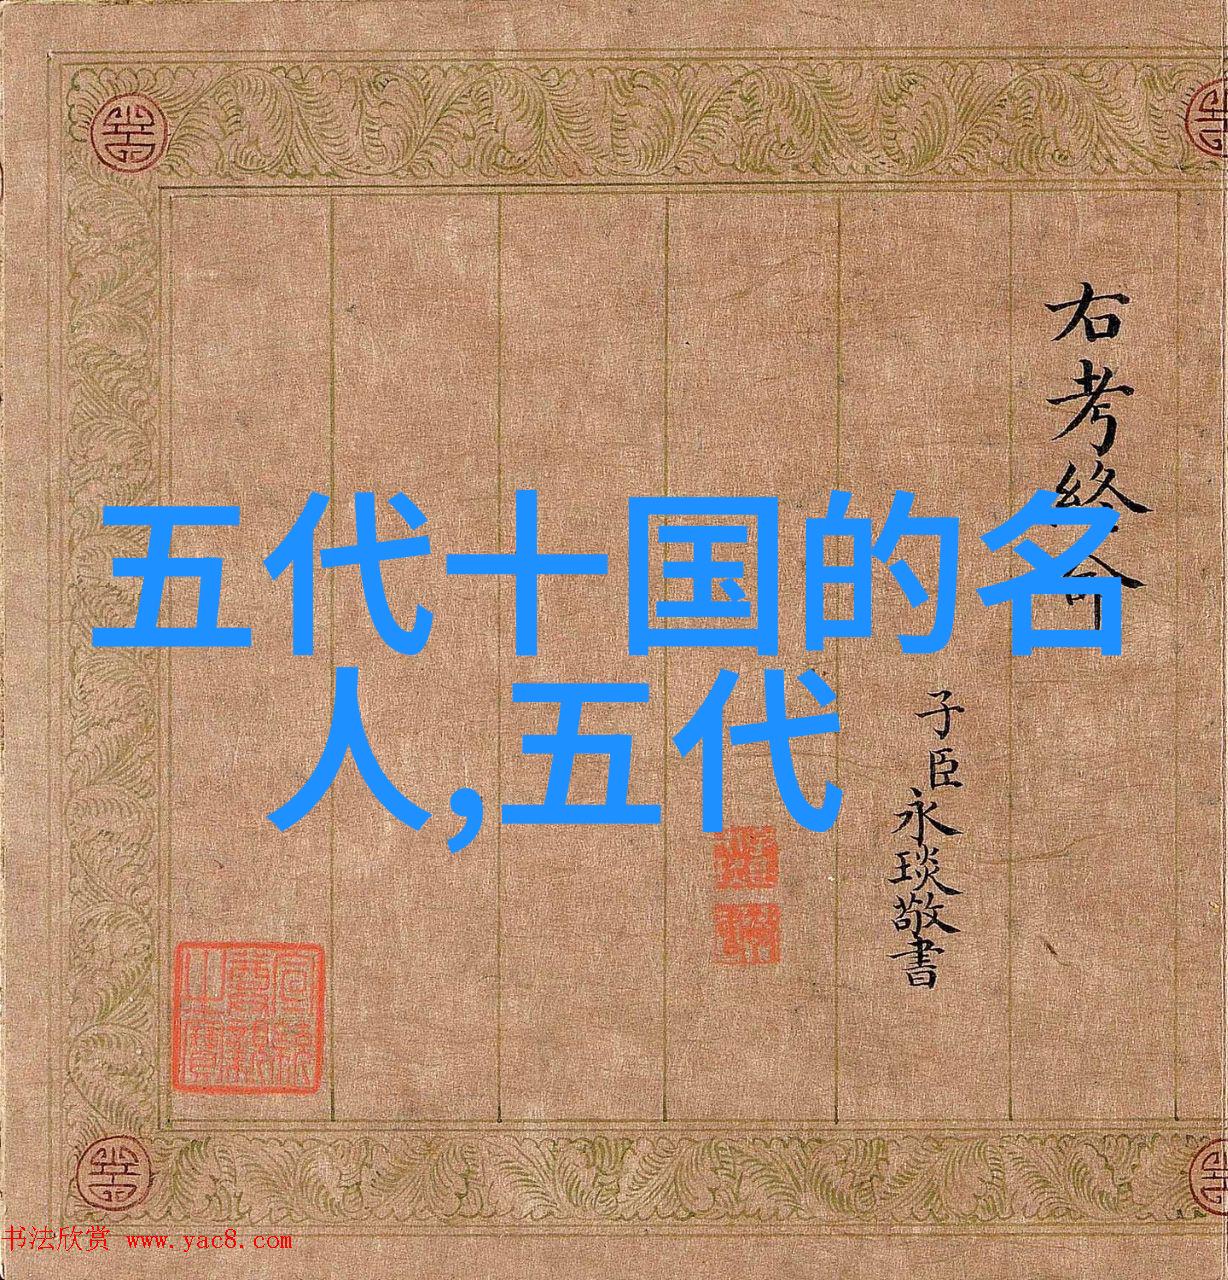 五代十国的名
人,五代
右考終命
子臣永琰敬書
宣統御覽之寶
書法欣赏 www.yac8.com